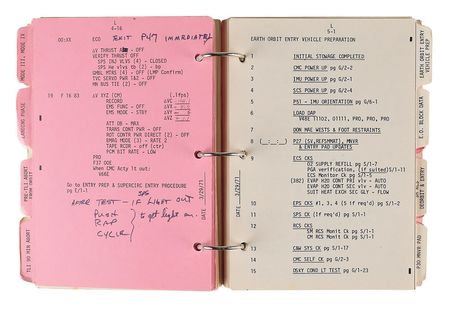 MODE III, MODE IV
LANDING PHASE
PRE-TLI ABORT
FROM ORBIT
TLI 90 MIN ABORT
L
4-16
00:XX ECO EXIT P47 IMMEDIATELY
ΔV THRUST A - OFF
VERIFY THRUST OFF
SPS INJ VLVS (4) - CLOSED
SPS He vlvs tb (2) - bp
GMBL MTRS (4) - OFF (LMP Confirm)
TVC SERVO PWR 1&2 - OFF
MN BUS TIE (2) - OFF
19 F 16 83 ΔV XYZ (CM)
RECORD
EMS FUNC - OFF
EMS MODE - STBY
ATT DB - MAX
TRANS CONT PWR - OFF
ROT CONTR PWR DIRECT (2) - OFF
BMAG MODE (3) - RATE 2
TAPE RCDR - off (ctr)
PCM BIT RATE - LOW
PRO
P37 OOE
When CMC Acty lt out:
V66E
Go to ENTRY PREP & SUPERCIRC ENTRY PROCEDURE
pg E/1-1
LAMP TEST - IF LIGHT OUT
PUSH
CYCLE
to get light on.
DATE 3/29/71
L
5-1
EARTH ORBIT ENTRY VEHICLE PREPARATION
1 INITIAL STOWAGE COMPLETED
2 CMC POWER UP pg G/2-2
3 IMU POWER UP pg G/2-1
4 SCS POWER UP pg G/2-4
5 P51 - IMU ORIENTATION pg G/6-1
6 LOAD DAP
V48E 11102, 01111, PRO, PRO, PRO
7 DON HAE WESTS & FOOT RESTRAINTS
8 P27 (SV,REFSMMAT), MNVR
& ENTRY PAD UPDATES
9 ECS CKS
O2 SUPPLY REFILL pg S/1-7
PGA verification, (if suited) pg S/1-11
ECS Monitor Ck pg S/1-5
(382) EVAP H2O CONT PRI vlv - AUTO
EVAP H2O CONT SEC vlv - AUTO
SUIT HEAT EXCH SEC GLY - FLOW
10 EPS CKS #1, 3, 4 (5 if req'd) pg S/1-2
11 SPS CK (If req'd) pg S/1-1
12 RCS CKS
SM RCS Monit Ck pg S/1-1
CM RCS Monit Ck pg S/1-1
13 C&W SYS CK pg S/1-17
14 CMC SELF CK pg G/2-3
15 DSKY COND LT TEST pg G/1-23
DATE 3/29/71
EARTH ORBIT ENTRY
VEHICLE PREP
E.O. BLOCK DATA
DEORBIT & ENTRY
P30 MNVR PAD